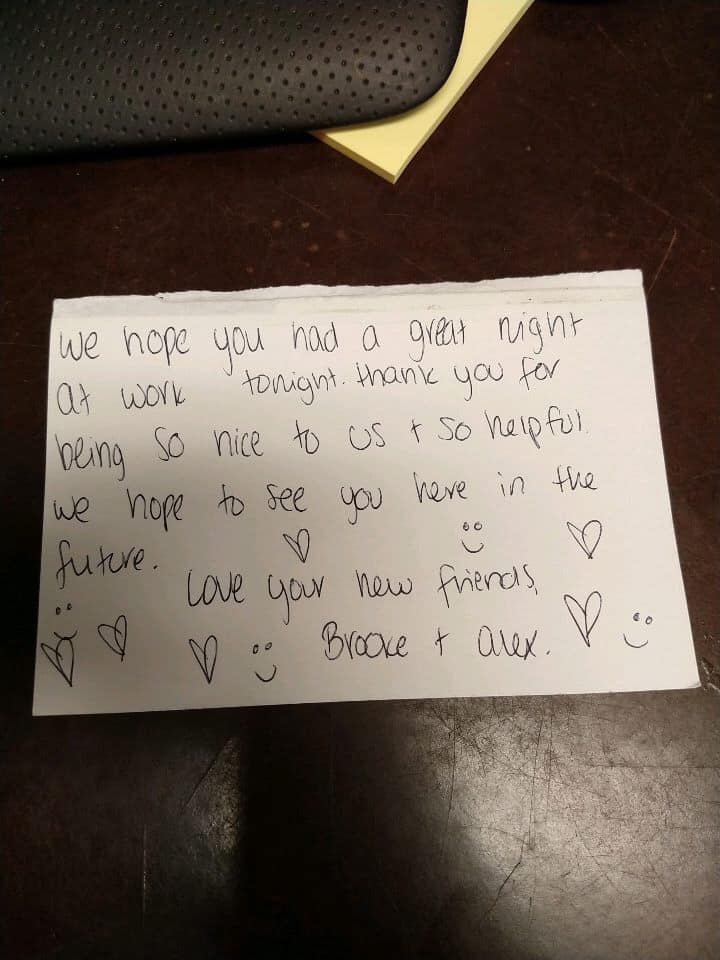 we hope you had a great night
at work tonight. thank you for
being so nice to us + so helpful.
we hope to see you here in the
future.
Love your new friends,
Brooke + alex.